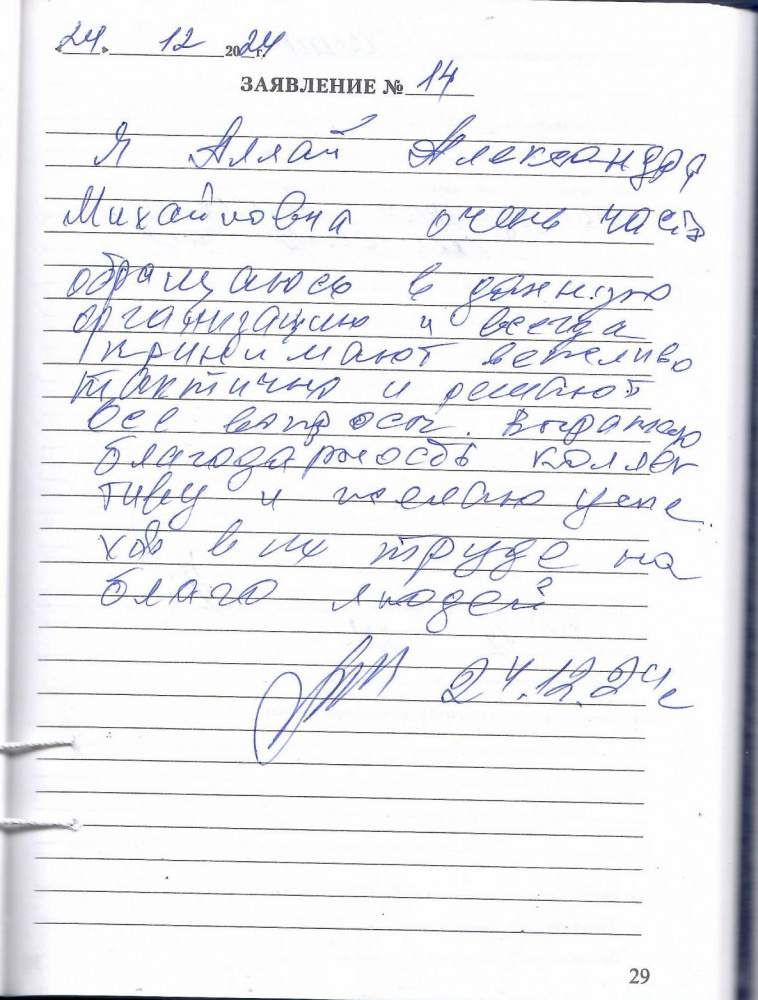 «24» 12 2024 г.
ЗАЯВЛЕНИЕ № 14
Я Аллай Александра
Михайловна очень часто
обращаюсь в данную
организацию и всегда
принимают вежливо
тактично и решают
все вопросы. Выражаю
благодарность коллек
тиву и желаю успе
хов в их труде на
благо людей
24.12.24г
29